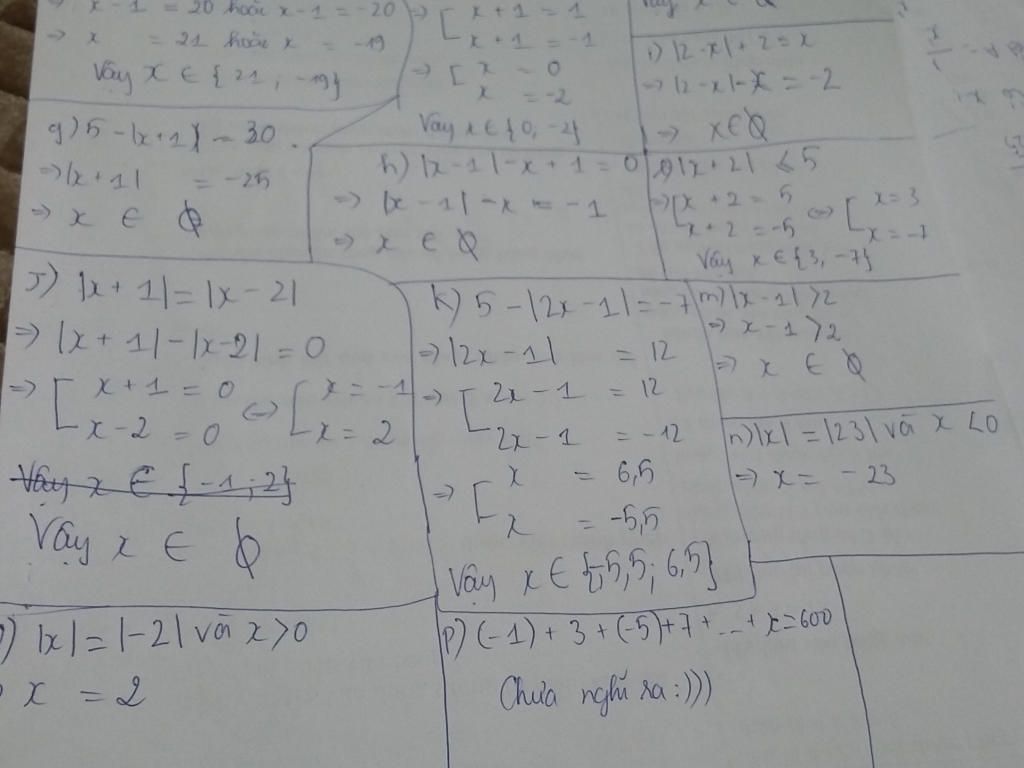 ⇒ x - 1 = 20 hoặc x - 1 = -20
⇒ x = 21 hoặc x = -19
Vậy x ∈ {21; -19}
⇒ [ x + 1 = 1
x + 1 = -1
⇒ [ x = 0
x = -2
Vậy x ∈ {0, -2}
Vậy x ∈ ∅
i) |2-x| + 2 = x
⇒ |2-x| - x = -2
⇒ x ∈ ∅
g) 5 - |x+1| = 30
⇒ |x+1| = -25
⇒ x ∈ ∅
h) |x-1| - x + 1 = 0
⇒ |x-1| - x = -1
⇒ x ∈ ∅
|x+2| ≤ 5
⇒ [ x + 2 = 5
x + 2 = -5
⇔ [ x = 3
x = -7
Vậy x ∈ {3, -7}
J) |x+1| = |x-2|
⇒ |x+1| - |x-2| = 0
⇒ [ x + 1 = 0
x - 2 = 0
⇔ [ x = -1
x = 2
Vậy x ∈ {-1; 2}
Vậy x ∈ ∅
k) 5 - |2x-1| = -7
⇒ |2x-1| = 12
⇒ [ 2x - 1 = 12
2x - 1 = -12
⇒ [ x = 6,5
x = -5,5
Vậy x ∈ {-5,5; 6,5}
m) |x-1| > 2
⇒ x - 1 > 2
⇒ x ∈ ∅
n) |x| = |23| và x < 0
⇒ x = -23
) |x| = |-2| và x > 0
x = 2
p) (-1) + 3 + (-5) + 7 + ... + x = 600
Chưa nghĩ ra :)))